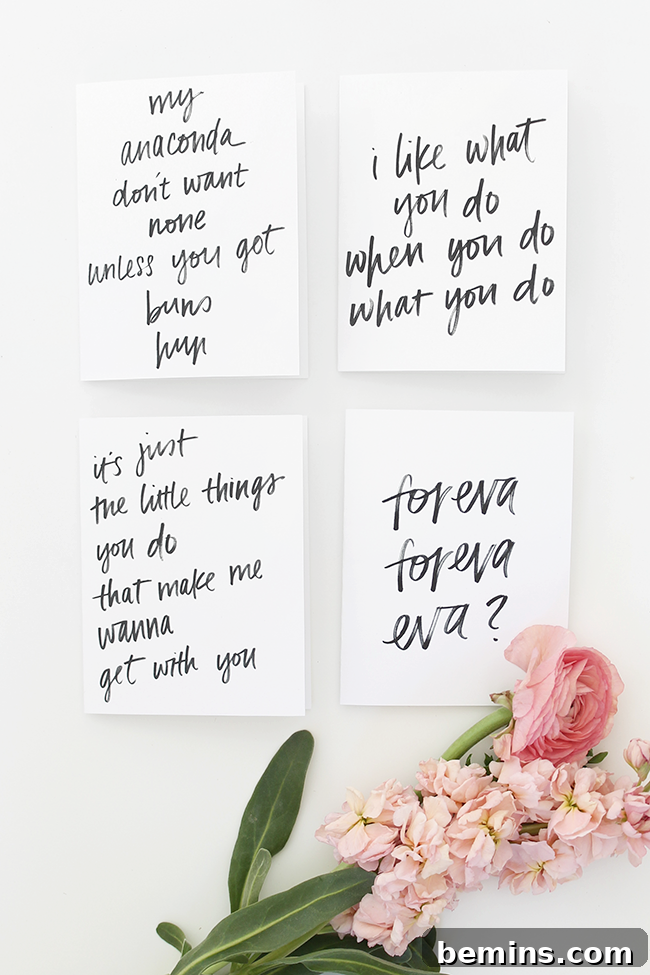 my
anaconda
don't want
none
unless you got
buns
hun
i like what
you do
when you do
what you do
it's just
the little things
you do
that make me
wanna
get with you
foreva
foreva
eva?
bemins.com